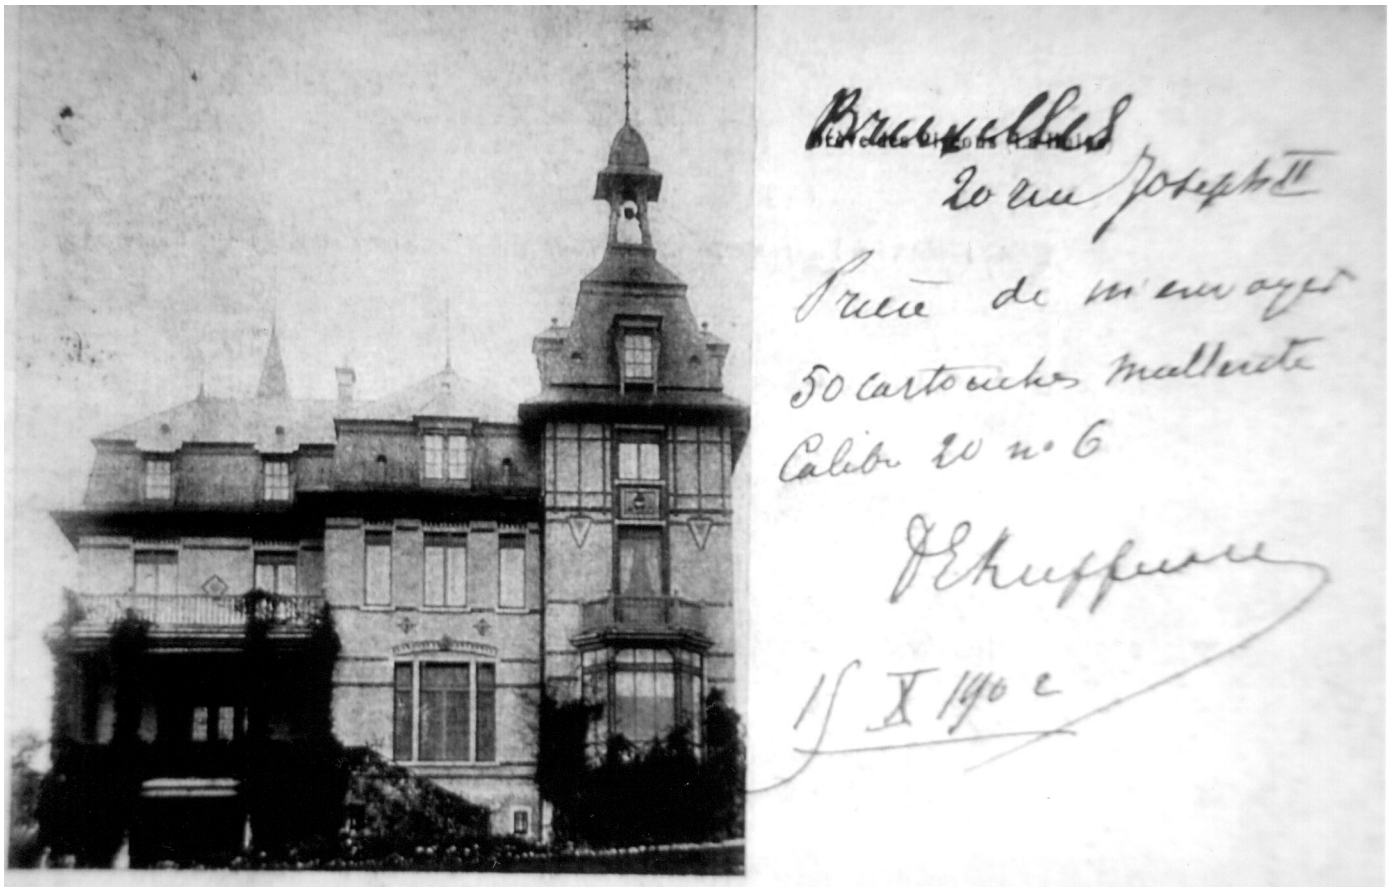 Bruxelles
20 rue Joseph II
Prière de m'envoyer
50 cartouches mullerite
Calibre 20 no 6
15 X 1902